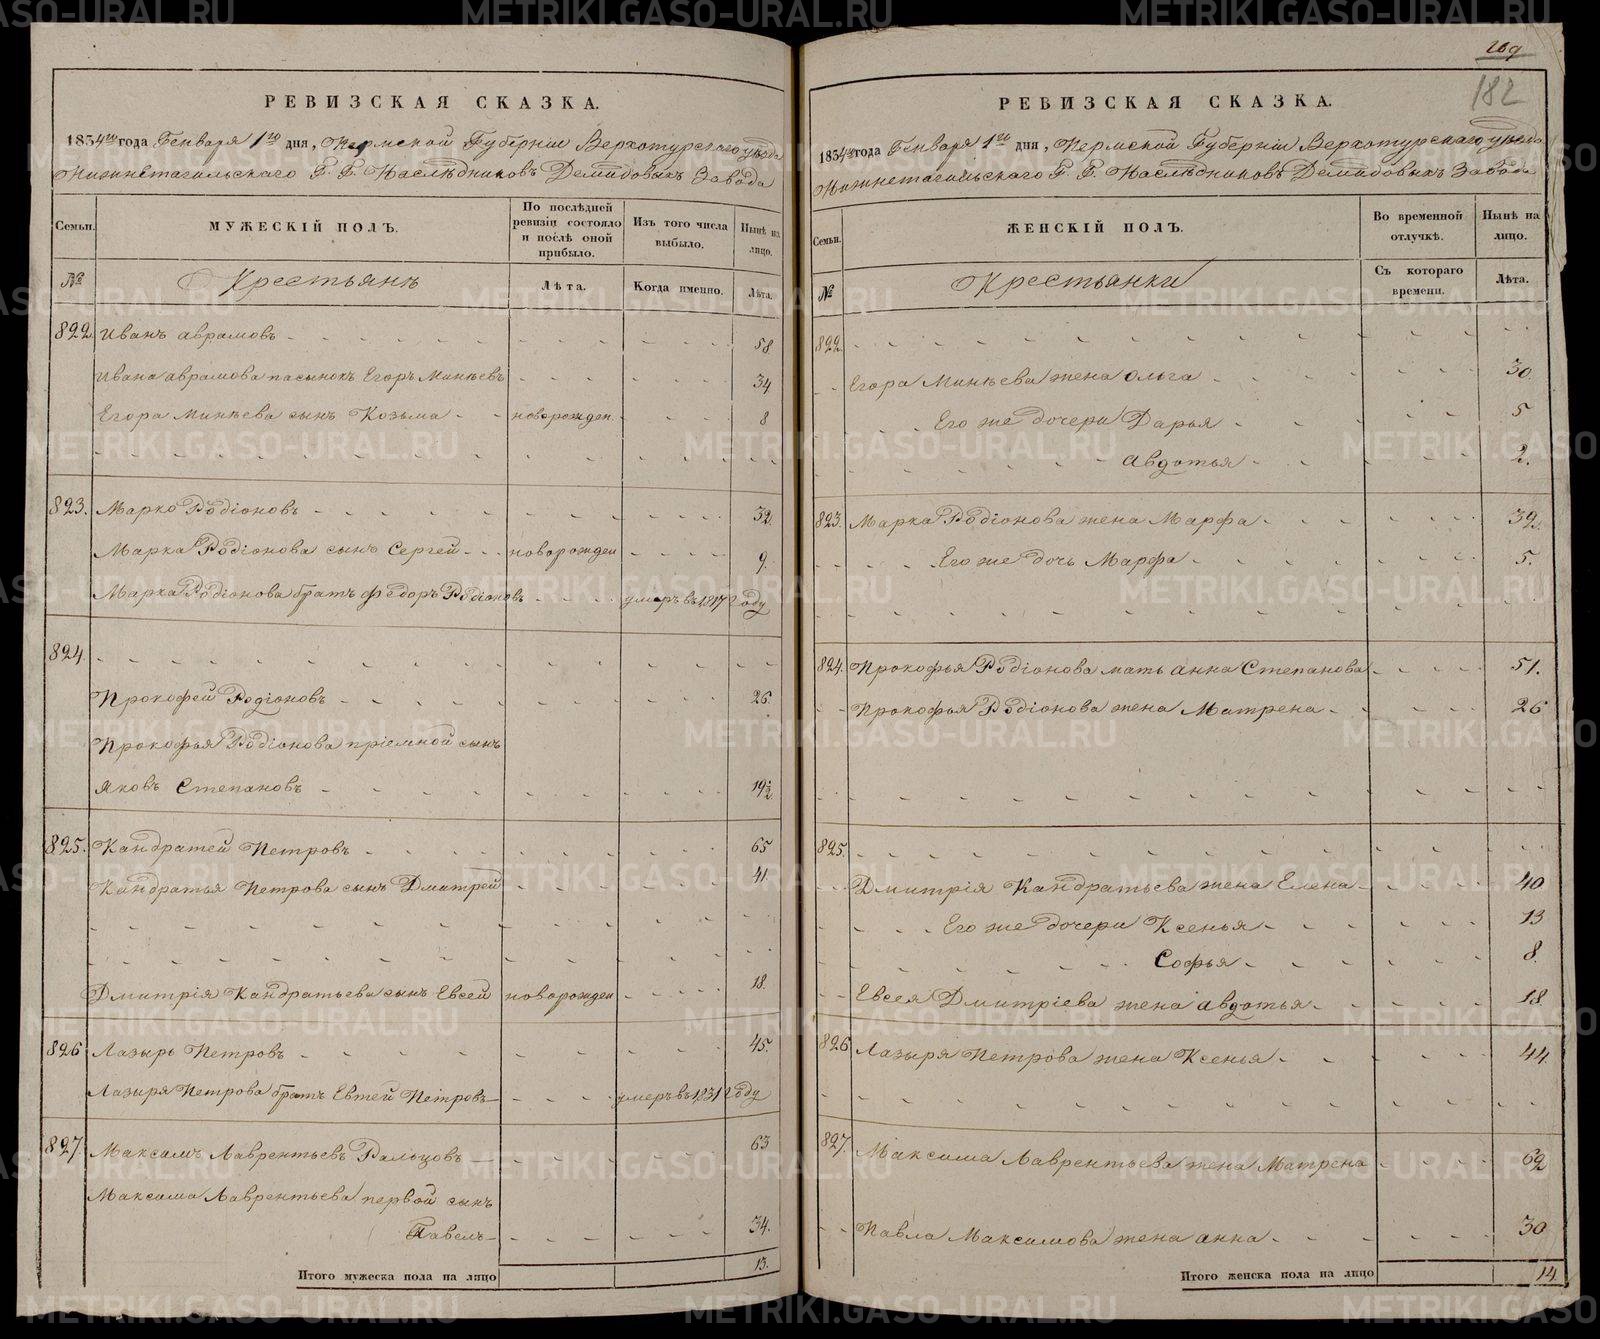 РЕВИЗСКАЯ СКАЗКА.
1834го года Генваря 1го дня, Пермской Губерніи Верхотурскаго уѣзда
Нижнетагильскаго Г. Г. Наслѣдниковъ Демидовыхъ Завода
Семьи.
МУЖЕСКІЙ ПОЛЪ.
По послѣдней ревизіи состояло и послѣ оной прибыло.
Изъ того числа выбыло.
Нынѣ на лицо.
№
Крестьянъ
Лѣта.
Когда именно.
Лѣта.
822. Иванъ Аврамовъ 58
Ивана Аврамова пасынокъ Егоръ Минѣевъ 34
Егора Минѣева сынъ Козьма новорожден. 8
823. Марко Родіоновъ 32.
Марка Родіонова сынъ Сергей новорожден 9.
Марка Родіонова братъ Федоръ Родіоновъ умеръ въ 1817 году
824.
Прокофей Родіоновъ 26.
Прокофья Родіонова пріемной сынъ
Яковъ Степановъ 19½
825. Кандратей Петровъ 65
Кандратья Петрова сынъ Дмитрей 41.
Дмитрія Кандратьева сынъ Евсей новорожден 18.
826 Лазырь Петровъ 45.
Лазыря Петрова братъ Евтей Петровъ умеръ въ 1831 году
827. Максимъ Лаврентьевъ Пальцовъ 63
Максима Лаврентьева первой сынъ
Павелъ 34.
Итого мужеска пола на лицо 13.
269
182
РЕВИЗСКАЯ СКАЗКА.
1834го года Генваря 1го дня, Пермской Губерніи Верхотурскаго уѣзда
Нижнетагильскаго Г. Г. Наслѣдниковъ Демидовыхъ Завода
Семьи.
ЖЕНСКІЙ ПОЛЪ.
Во временной отлучкѣ.
Нынѣ на лицо.
№
Крестьянки
Съ котораго времени.
Лѣта.
822.
Егора Минѣева жена Ольга 30.
Его же дочери Дарья 5
Авдотья 2.
823. Марка Родіонова жена Марфа 32.
Его же дочь Марфа 5.
824. Прокофья Родіонова мать Анна Степанова 51.
Прокофья Родіонова жена Матрена 26
825.
Дмитрія Кандратьева жена Елена 40
Его же дочери Ксенья 13
Софья 8.
Евсея Дмитріева жена Авдотья 18.
826 Лазыря Петрова жена Ксенья 44.
827. Максима Лаврентьева жена Матрена 62
Павла Максимова жена Анна 30
Итого женска пола на лицо 14
METRIKI.GASO-URAL.RU